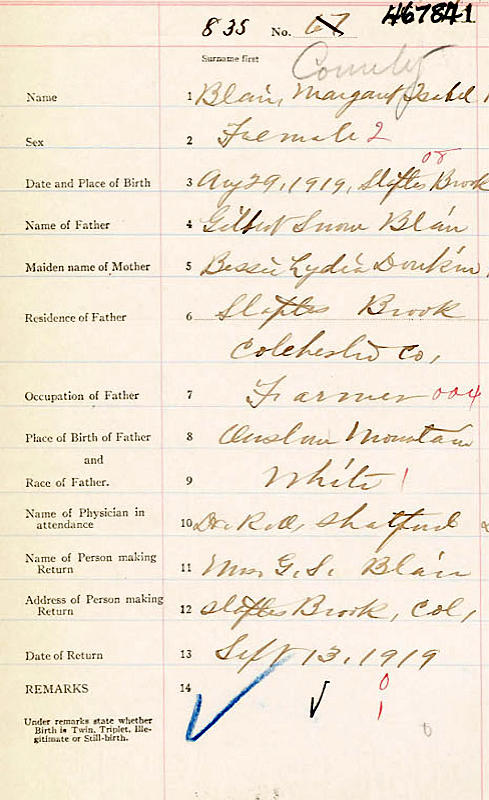 467841
835 No. 67
Surname first
County
Name 1 Blair, Margaret Isabel
Sex 2 Female 2
08
Date and Place of Birth 3 Aug 29, 1919, Staples Brook
Name of Father 4 Gilbert Snow Blair
Maiden name of Mother 5 Bessie Lydia Donkin
Residence of Father 6 Staples Brook
Colchester Co,
Occupation of Father 7 Farmer 004
Place of Birth of Father 8 Onslow Mountain
and
Race of Father. 9 White 1
Name of Physician in
attendance 10 Dr. Shatford
Name of Person making
Return 11 Mrs. G. S. Blair
Address of Person making
Return 12 Staples Brook, Col,
Date of Return 13 Sept 13, 1919
REMARKS 14
0
1
Under remarks state whether
Birth is Twin, Triplet, Ille-
gitimate or Still-birth.